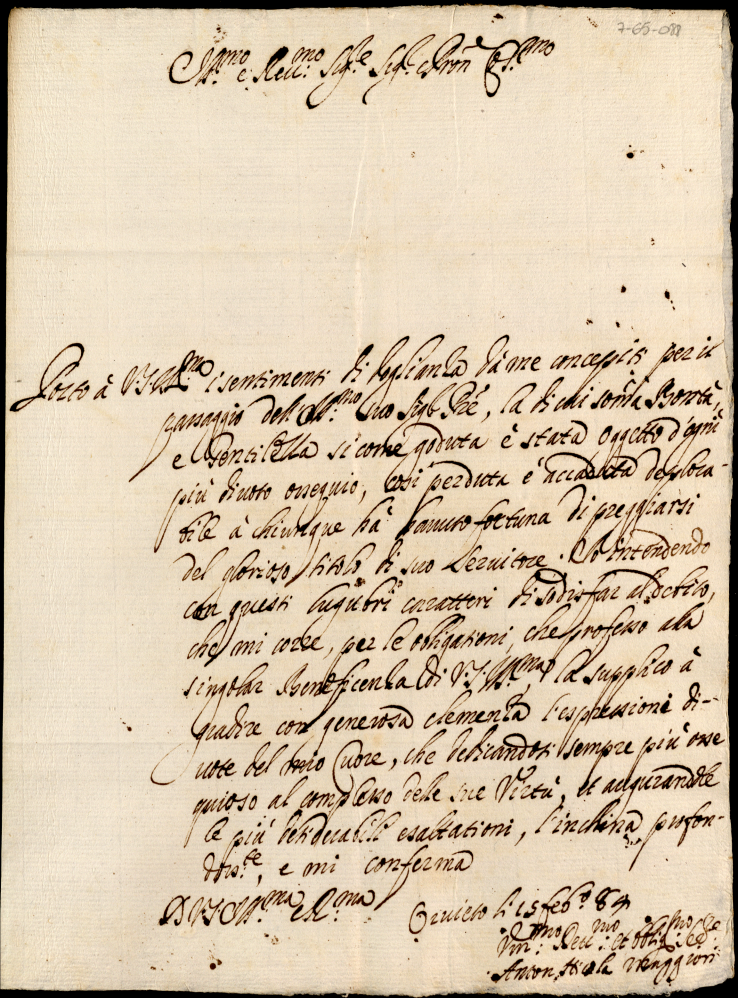 7-65-088
Ill.mo e Reu.mo Sig.re Sig.r e Pron Col.mo
Porto à V.S. Ill.ma i sentimenti di doglianza da me concepiti per il
passaggio dell'Ill.mo suo Sigr Pre, la di cui som̃a Bontà,
e Gentilezza si come goduta è stata oggetto d'ogni
più diuoto ossequio, così perduta è accaduta deplora-
bile à chiunque hà hauuto fortuna di preggiarsi
del glorioso titolo di suo Seruitore. Io intendendo
con questi lugubri caratteri di sodisfar al debito,
che mi corre, per le obligationi, che professo alla
singolar Beneficenza di V.S. Ill.ma, la supplico à
gradire con generosa clemenza l'espressioni di-
uote del mio Cuore, che dedicandosi sempre più osse
quioso al complesso delle sue Virtù, et augurandole
le più desiderabili esaltationi, l'inchina profon-
dam.te, e mi conferma
D V.S. Ill.ma e R.ma
Oruieto li 15 feb.o 84
Um.mo Deu.mo et oblig.mo Se.re
Anton Nicola